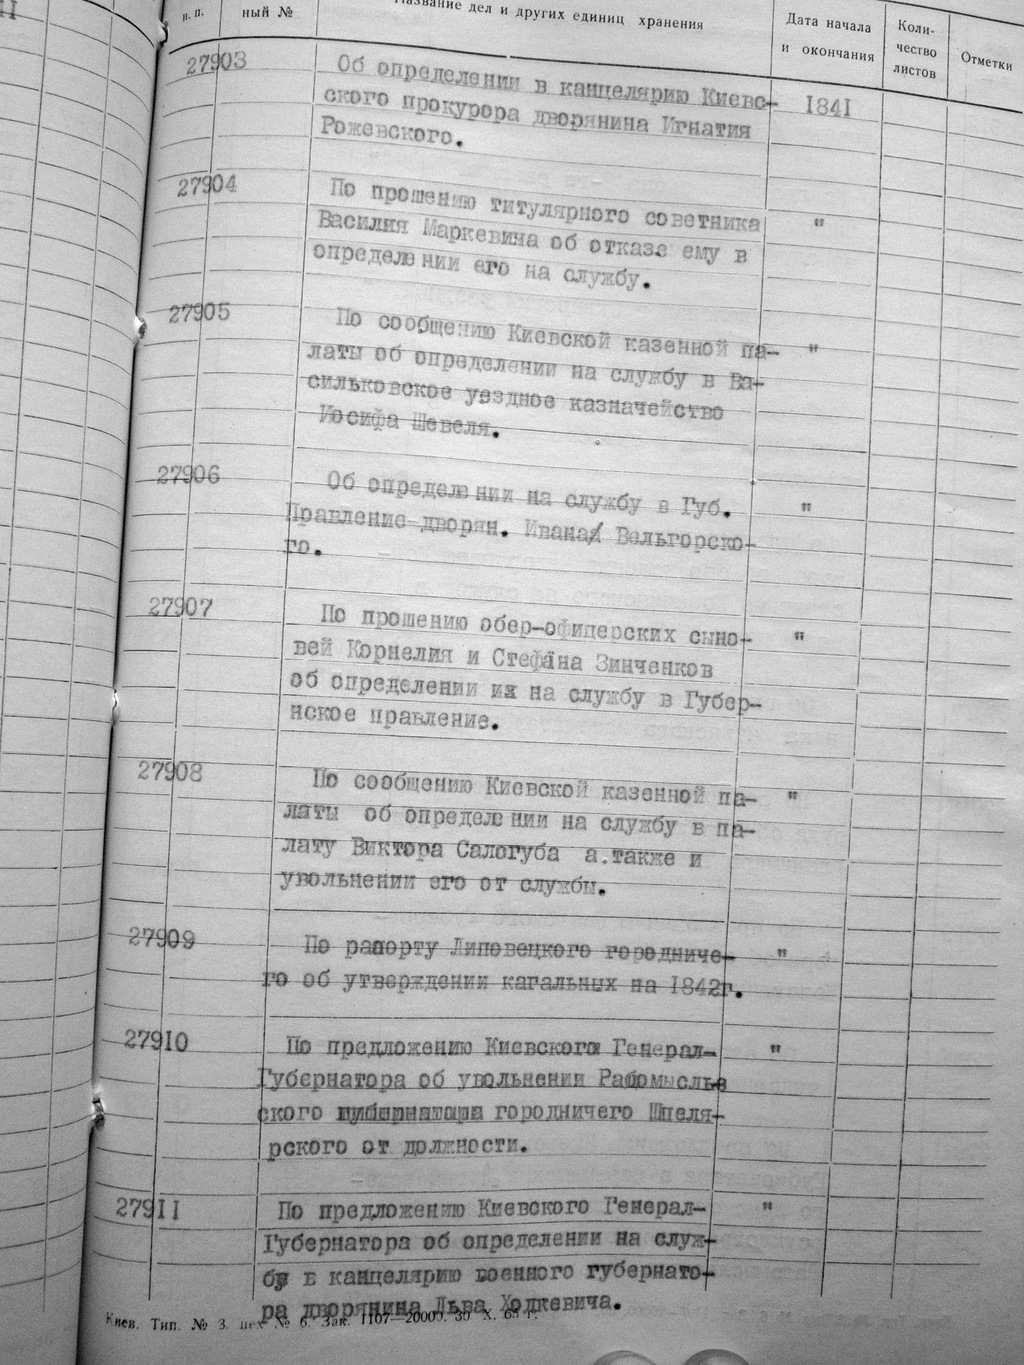 п. п.
ный №
Название дел и других единиц хранения
Дата начала
и окончания
Коли-
чество
листов
Отметки
27903
Об определении в канцелярию Киевс-
ского прокурора дворянина Игнатия
Рожевского.
1841
27904
По прошению титулярного советника
Василия Маркевича об отказе ему в
определении его на службу.
"
27905
По сообщению Киевской казенной па-
латы об определении на службу в Ва-
сильковское уездное казначейство
Иосифа Шевеля.
"
27906
Об определении на службу в Губ.
Правление дворян. Ивана Вельгорско-
го.
"
27907
По прошению обер-офицерских сыно-
вей Корнелия и Стефана Зинченков
об определении их на службу в Губер-
нское правление.
"
27908
По сообщению Киевской казенной па-
латы об определении на службу в па-
лату Виктора Салогуба а.также и
увольнении его от службы.
"
27909
По рапорту Липовецкого городниче-
го об утверждении кагальных на 1842г.
"
27910
По предложению Киевского Генерал-
Губернатора об увольнении Радомысль
ского городничего Шпеля-
рского от должности.
"
27911
По предложению Киевского Генерал-
Губернатора об определении на служ-
бу в канцелярию военного губернато-
ра дворянина Льва Ходкевича.
"
Киев. Тип. № 3. цех № 6. Зак. 1107—20000. 30 X. 65 г.